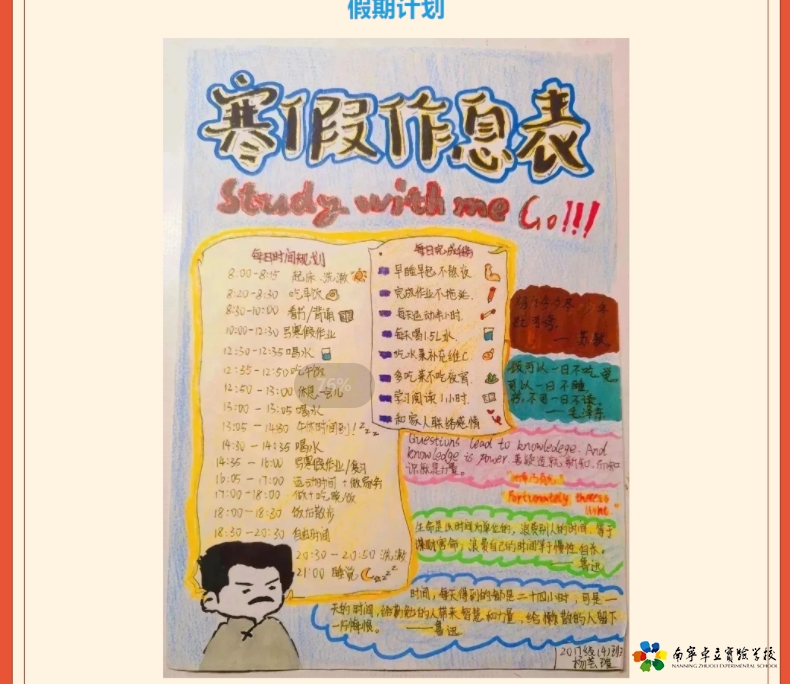 假期计划
寒假作息表
Study with me Go!!!
每日时间规划
8:00-8:15 起床、洗漱
8:20-8:30 吃早饭
8:30-10:00 看书/背诵
10:00-12:30 写寒假作业
12:30-12:35 喝水
12:35-12:50 吃午饭
12:50-13:00 休息一会儿
13:00-13:05 喝水
13:05-14:30 午休时间到!zzz
14:30-14:35 喝水
14:35-16:00 写寒假作业/复习
16:05-17:00 运动时间+做家务
17:00-18:00 做+吃晚饭
18:00-18:30 饭后散步
18:30-20:30 自由时间
20:30-20:50 洗漱
21:00 睡觉 zzz
每日完成任务
早睡早起不熬夜
完成作业不拖延.
每天运动半小时.
每天喝1.5L水.
吃水果补充维C
多吃菜不吃夜宵.
学习阅读1小时.
和家人联络感情
75%
——苏轼
饭可以一日不吃,觉
可以一日不睡
书不可一日不读。
——毛泽东
Questions lead to knowledege. And
knowledge is power
Fortunately there's
light
生命是以时间为单位的,浪费别人的时间等于
谋财害命;浪费自己的时间等于慢性自杀。
——鲁迅
时间,每天得到的都是二十四小时,可是一
天的时间给勤勉的人带来智慧和力量,给懒散的人留下
一片悔恨。 ——鲁迅
南宁卓立实验学校
NANNING ZHUOLI EXPERIMENTAL SCHOOL